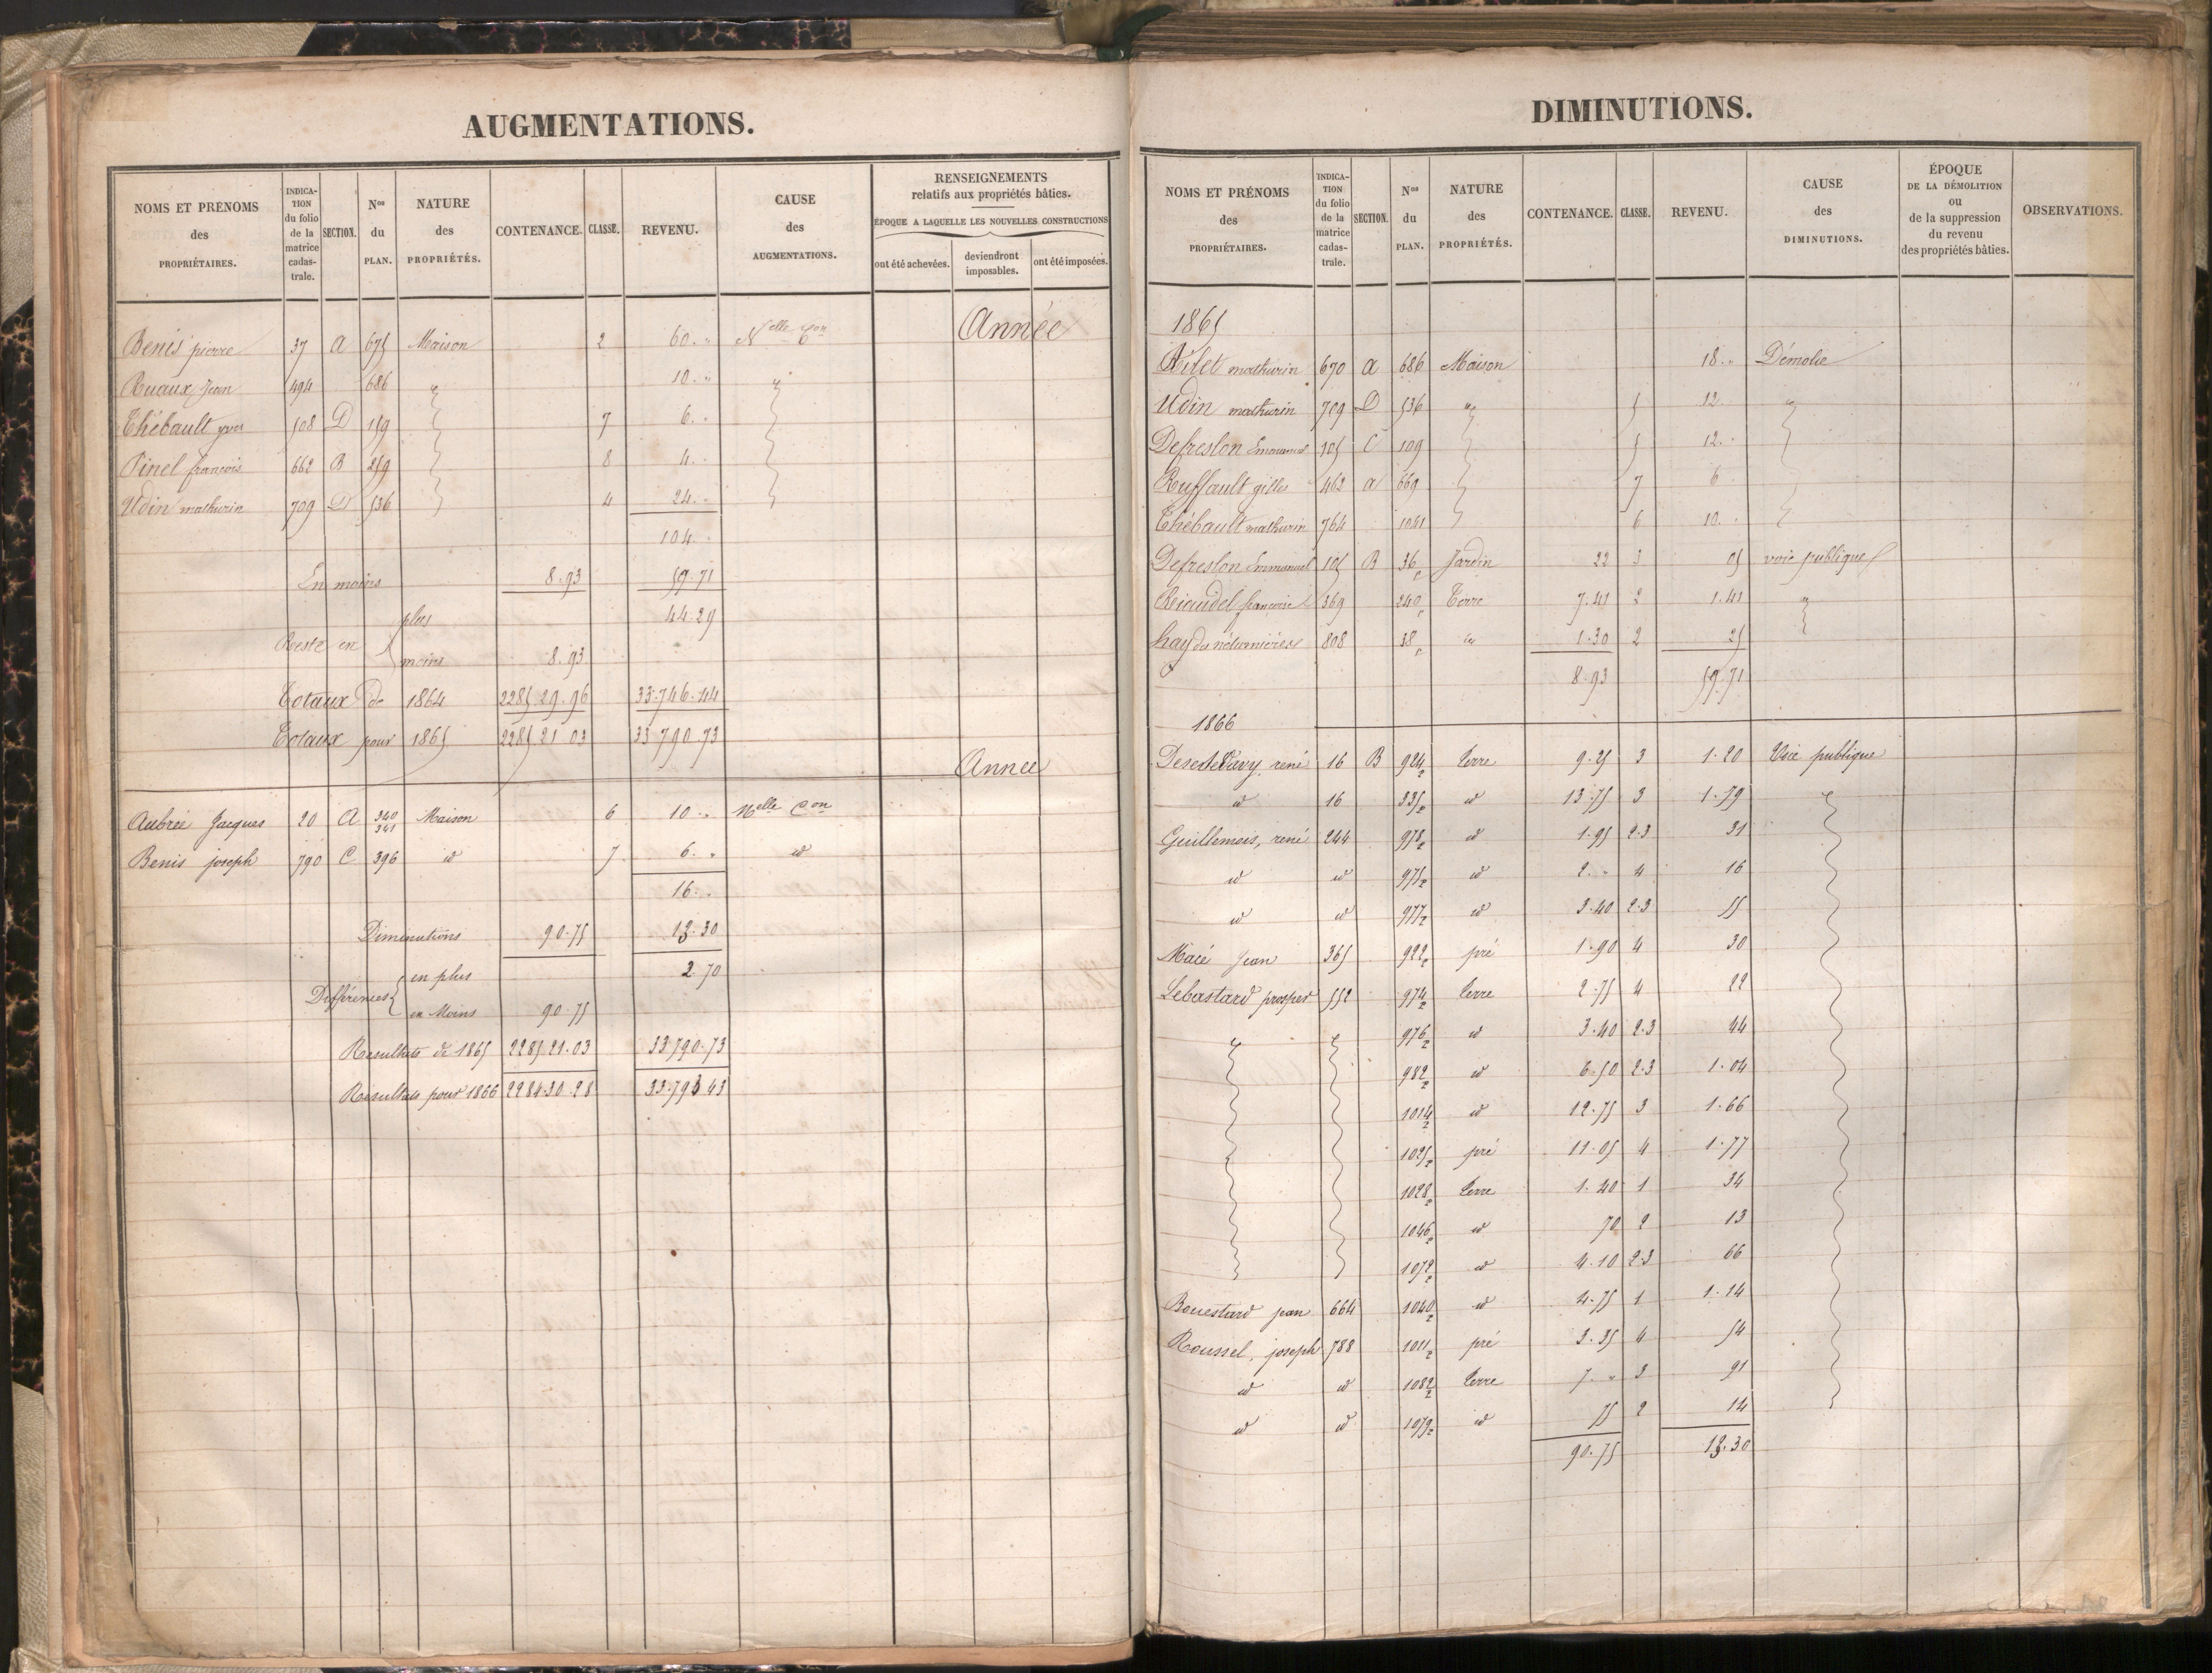 AUGMENTATIONS.
NOMS ET PRÉNOMS des PROPRIÉTAIRES. INDICATION du folio de la matrice cadastrale. SECTION. Nos du PLAN. NATURE des PROPRIÉTÉS. CONTENANCE. CLASSE. REVENU. CAUSE des AUGMENTATIONS. RENSEIGNEMENTS relatifs aux propriétés bâties. ÉPOQUE A LAQUELLE LES NOUVELLES CONSTRUCTIONS ont été achevées. deviendront imposables. ont été imposées.
Année
Benis pierre 37 A 675 Maison 2 60. " Nelle Con
Ruaux Jean 494 686 " 10. " "
Thébault yves 508 D 159 7 6. "
Pinel françois 662 B 259 8 4. "
Udin mathurin 709 D 536 4 24. "
104. "
En moins 8.93 59.71
plus 44.29
Reste en
moins 8.93
Totaux de 1864 2285 29.96 33.746.44
Totaux pour 1865 2285 21 03 33 790.73
Année
Aubrée Jacques 20 A 340 341 Maison 6 10 " Nelle Con
Benis joseph 790 C 396 id 7 6. " id
16. "
Diminutions 90.75 13.30
en plus 2.70
Différences
en Moins 90.75
Résultats de 1865 2285 21.03 33.790.73
Résultats pour 1866 2284.30.28 33.793 43
DIMINUTIONS.
NOMS ET PRÉNOMS des PROPRIÉTAIRES. INDICATION du folio de la matrice cadastrale. SECTION. Nos du PLAN. NATURE des PROPRIÉTÉS. CONTENANCE. CLASSE. REVENU. CAUSE des DIMINUTIONS. ÉPOQUE DE LA DÉMOLITION ou de la suppression du revenu des propriétés bâties. OBSERVATIONS.
1865
mathurin 670 A 686 Maison 18. " Démolie
Udin mathurin 709 D 536 " 5 12. "
Defreslon Emmanuel 105 C 109 5 12. "
Ruffault gilles 462 A 669 7 6
Thébault mathurin 764 1041 6 10. "
Defreslon Emmanuel 105 B 36 Jardin 22 3 05 voie publique
françoise 369 240 Terre 7.41 2 1.41 "
808 38 " 1.30 2 25
8.93 59.71
1866
René 16 B 924 terre 9.25 3 1.20 Voie publique
id 16 335 id 13.75 3 1.79
Guillemois, rené 244 978 id 1.95 2.3 31
id id 975 id 2. " 4 16
id id 977 id 3.40 2.3 55
Macé Jean 365 922 pré 1.90 4 30
Lebastard prosper 552 974 terre 2.75 4 22
" " 976 id 3.40 2.3 44
982 id 6.50 2.3 1.04
1014 id 12.75 3 1.66
1025 pré 11.05 4 1.77
1028 terre 1.40 1 34
1046 id 70 2 13
1072 id 4.10 2.3 66
Bouestard jean 664 1040 id 4.75 1 1.14
Roussel, joseph 788 1011 pré 3.35 4 54
id id 1082 terre 7. " 3 91
id id 1079 id 75 2 14
90.75 13.30